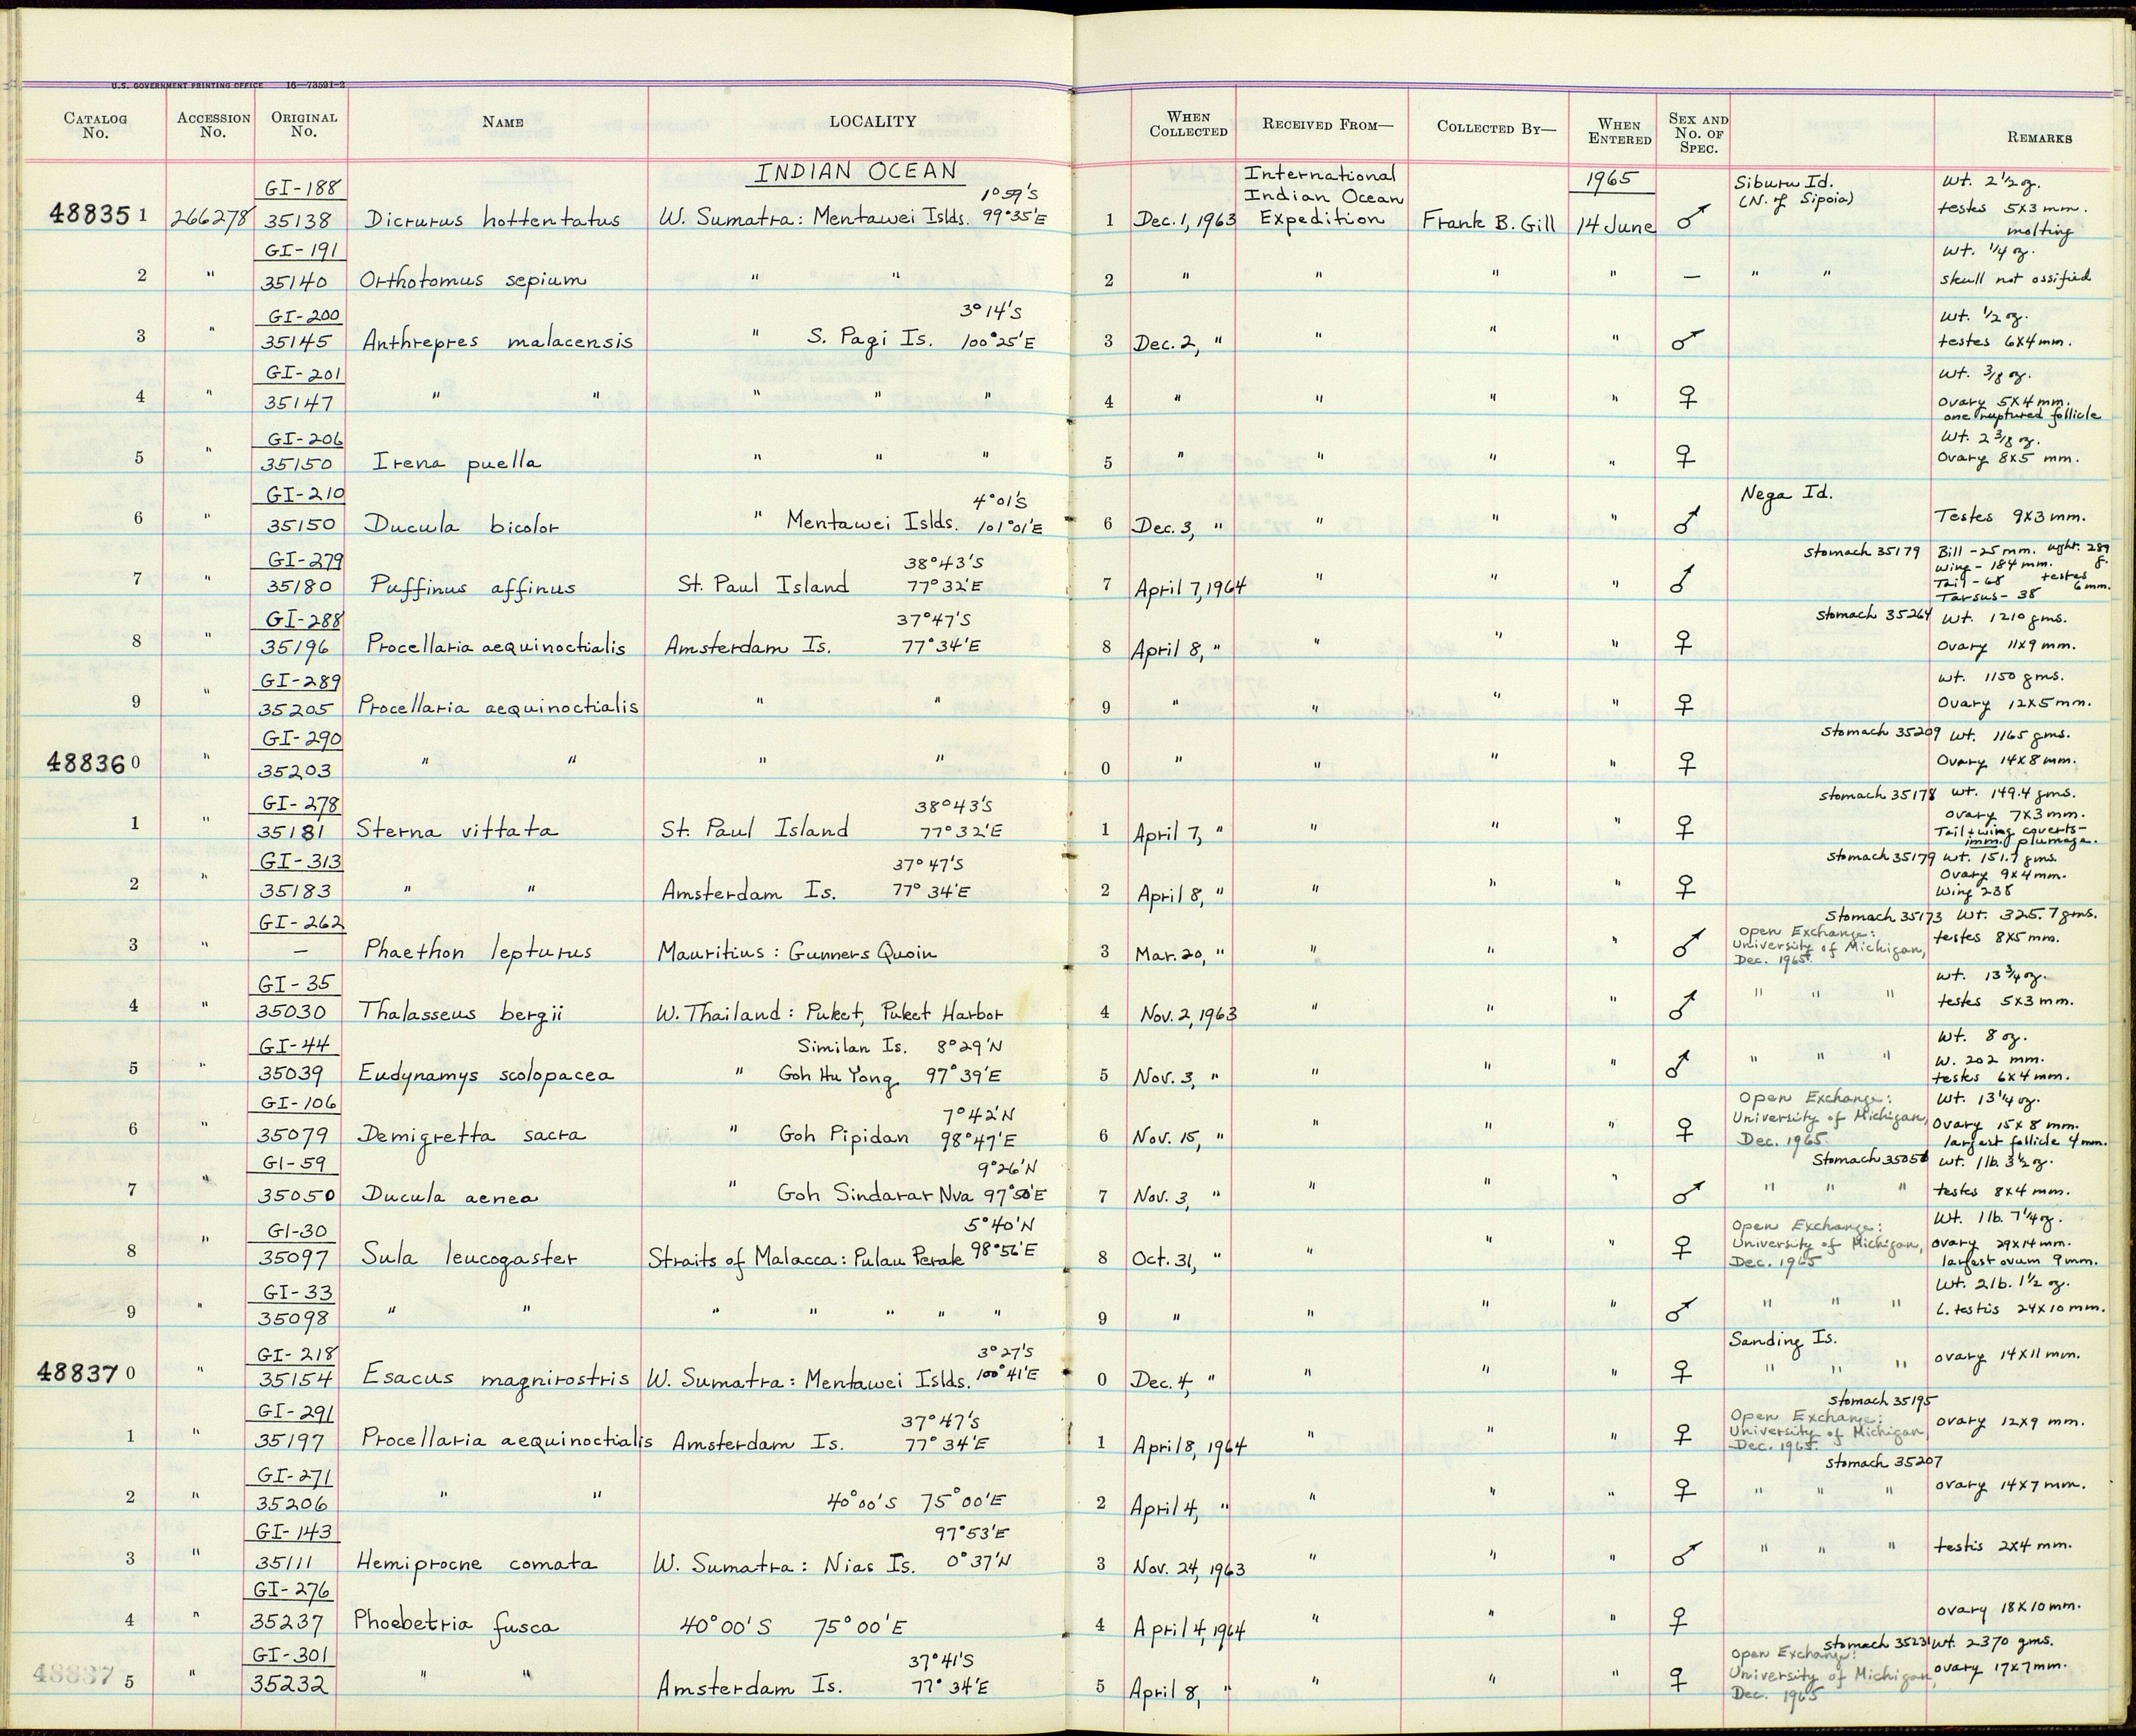 U.S. GOVERNMENT PRINTING OFFICE 16—73591-2
CATALOG No. ACCESSION No. ORIGINAL No. NAME LOCALITY WHEN COLLECTED RECEIVED FROM— COLLECTED BY— WHEN ENTERED SEX AND No. OF SPEC. REMARKS
INDIAN OCEAN International 1965 Siburu Id. Wt. 2 1/2 oz.
GI-188 1°59'S Indian Ocean (N. of Sipoia) testes 5X3 mm.
48835 1 266278 35138 Dicrurus hottentatus W. Sumatra: Mentawei Islds. 99°35'E 1 Dec. 1, 1963 Expedition Frank B. Gill 14 June ♂ molting
GI-191 Wt. 1/4 oz.
2 " 35140 Orthotomus sepium " " 2 " " " " — " " skull not ossified
GI-200 3°14'S Wt. 1/2 oz.
3 " 35145 Anthrepres malacensis " S. Pagi Is. 100°25'E 3 Dec. 2, " " " " ♂ testes 6X4 mm.
GI-201 Wt. 3/8 oz.
4 " 35147 " " " " " 4 " " " " ♀ Ovary 5X4 mm.
one ruptured follicle
GI-206 Wt. 2 3/8 oz.
5 " 35150 Irena puella " " " 5 " " " " ♀ Ovary 8x5 mm.
GI-210 4°01'S Nega Id.
6 " 35150 Ducula bicolor " Mentawei Islds. 101°01'E 6 Dec. 3, " " " " ♂ Testes 9X3 mm.
GI-279 38°43'S Stomach 35179 Bill - 25 mm. wght. 289 g.
Wing - 184 mm.
7 " 35180 Puffinus affinus St. Paul Island 77°32'E 7 April 7, 1964 " " " ♂ Tail - 68 testes 6 mm.
Tarsus - 38
GI-288 37°47'S Stomach 35264 Wt. 1210 gms.
8 " 35196 Procellaria aequinoctialis Amsterdam Is. 77°34'E 8 April 8, " " " " ♀ Ovary 11x9 mm.
GI-289 Wt. 1150 gms.
9 " 35205 Procellaria aequinoctialis " " 9 " " " " ♀ Ovary 12X5 mm.
GI-290 Stomach 35209 Wt. 1165 gms.
48836 0 " 35203 " " " " 0 " " " " ♀ Ovary 14X8 mm.
GI-278 38°43'S Stomach 35178 Wt. 149.4 gms.
ovary 7X3 mm.
1 " 35181 Sterna vittata St. Paul Island 77°32'E 1 April 7, " " " " ♀ Tail + wing coverts-
imm. plumage.
GI-313 37°47'S Stomach 35179 Wt. 151.7 gms.
Ovary 9x4 mm.
2 " 35183 " " Amsterdam Is. 77°34'E 2 April 8, " " " " ♀ Wing 238
GI-262 Stomach 35173 Wt. 325.7 gms.
3 " — Phaethon lepturus Mauritius: Gunners Quoin 3 Mar. 20, " " " " ♂ Open Exchange: University of Michigan, Dec. 1965 testes 8X5 mm.
GI-35 Wt. 13 3/4 oz.
4 " 35030 Thalasseus bergii W. Thailand: Puket, Puket Harbor 4 Nov. 2, 1963 " " " ♂ " " " testes 5X3 mm.
GI-44 Similan Is. 8°29'N Wt. 8 oz.
W. 202 mm.
5 " 35039 Eudynamys scolopacea " Goh Hu Yong 97°39'E 5 Nov. 3, " " " " ♂ " " " testes 6X4 mm.
GI-106 7°42'N Open Exchange: Wt. 13 1/4 oz.
6 " 35079 Demigretta sacra " Goh Pipidan 98°47'E 6 Nov. 15, " " " " ♀ University of Michigan, Dec. 1965 Ovary 15X8 mm.
largest follicle 4 mm.
GI-59 9°26'N Stomach Wt. 1 lb. 3 1/2 oz.
7 " 35050 Ducula aenea " Goh Sindarar Nva 97°50'E 7 Nov. 3, " " " " ♂ " " " testes 8X4 mm.
GI-30 5°40'N Open Exchange: Wt. 1 lb. 7 1/4 oz.
8 " 35097 Sula leucogaster Straits of Malacca: Pulau Perak 98°56'E 8 Oct. 31, " " " " ♀ University of Michigan, Dec. 1965 ovary 29X14 mm.
largest ovum 9 mm.
GI-33 Wt. 2 lb. 1 1/2 oz.
9 " 35098 " " " " " " " 9 " " " " ♂ " " " L. testis 24X10 mm.
GI-218 3°27'S Sanding Is.
48837 0 " 35154 Esacus magnirostris W. Sumatra: Mentawei Islds. 100°41'E 0 Dec. 4, " " " " ♀ " " " ovary 14X11 mm.
GI-291 37°47'S Stomach 35195
1 " 35197 Procellaria aequinoctialis Amsterdam Is. 77°34'E 1 April 8, 1964 " " " ♀ Open Exchange: University of Michigan, Dec. 1965 ovary 12X9 mm.
GI-271 Stomach 35207
2 " 35206 " " 40°00'S 75°00'E 2 April 4, " " " " ♀ " " " ovary 14X7 mm.
GI-143 97°53'E
3 " 35111 Hemiprocne comata W. Sumatra: Nias Is. 0°37'N 3 Nov. 24, 1963 " " " ♂ " " " testis 2X4 mm.
GI-276
4 " 35237 Phoebetria fusca 40°00'S 75°00'E 4 April 4, 1964 " " " ♀ ovary 18X10 mm.
GI-301 37°41'S Stomach 35231 Wt. 2370 gms.
48837 5 " 35232 " " Amsterdam Is. 77°34'E 5 April 8, " " " " ♀ Open Exchange: University of Michigan, Dec. 1965 ovary 17X7 mm.